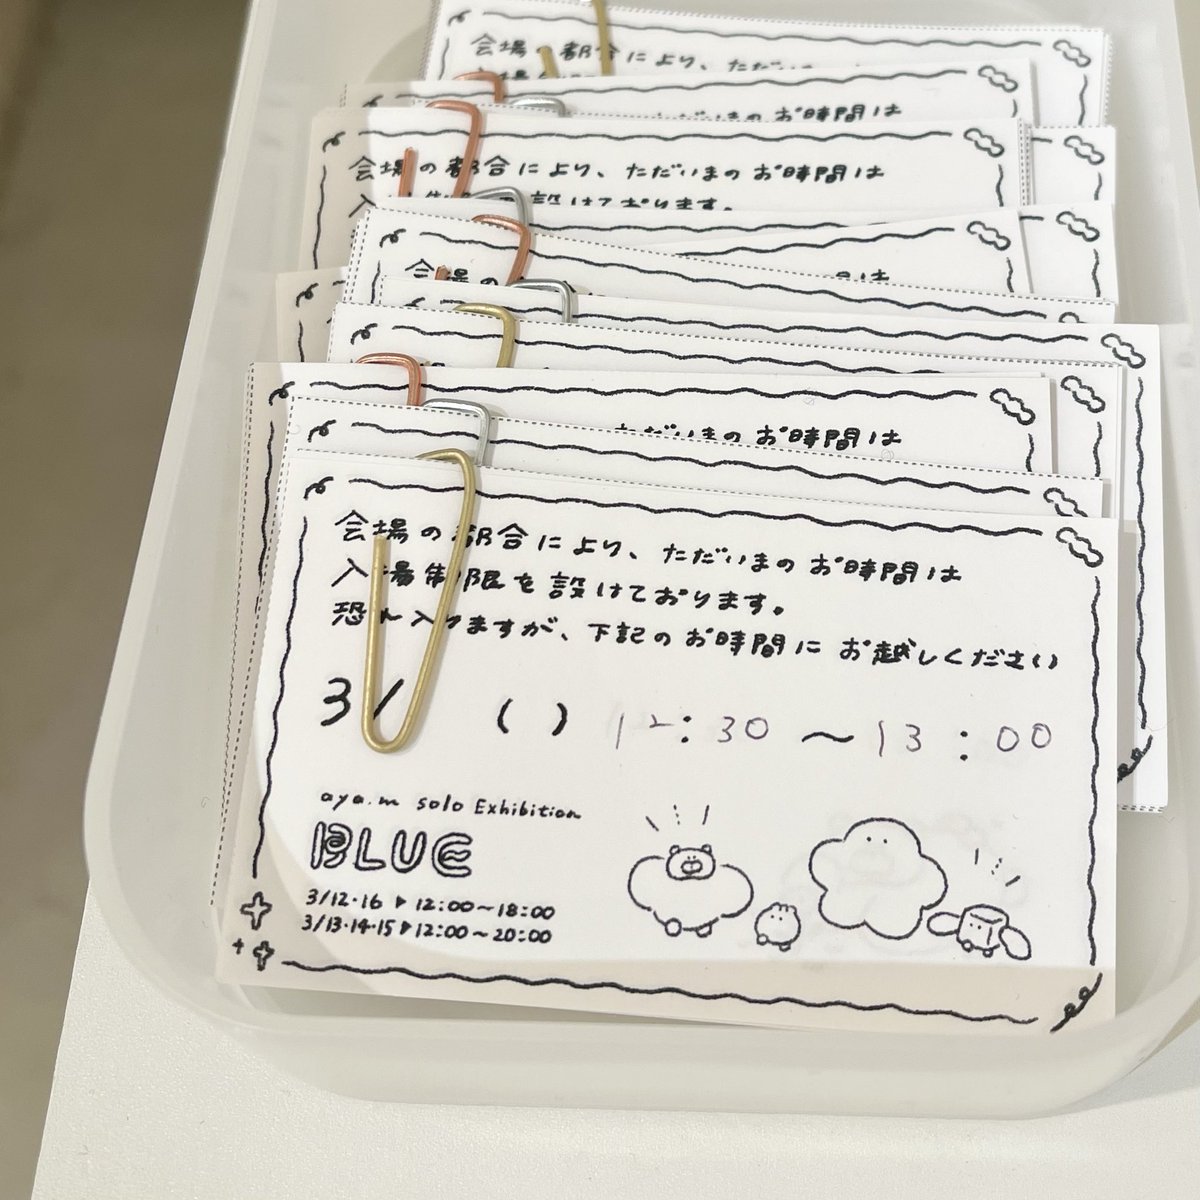 会場の都合により、ただ
お時間は
会場の都合により、ただいまのお時間は
設けております。
ただいまのお時間は
会場の都合により、ただいまのお時間は
入場制限を設けております。
恐れ入りますが、下記のお時間にお越しください
3/ ( ) 12:30 〜 13:00
aya.m solo Exhibition
BLUE
3/12・16 ▶ 12:00〜18:00
3/13・14・15 ▶ 12:00〜20:00